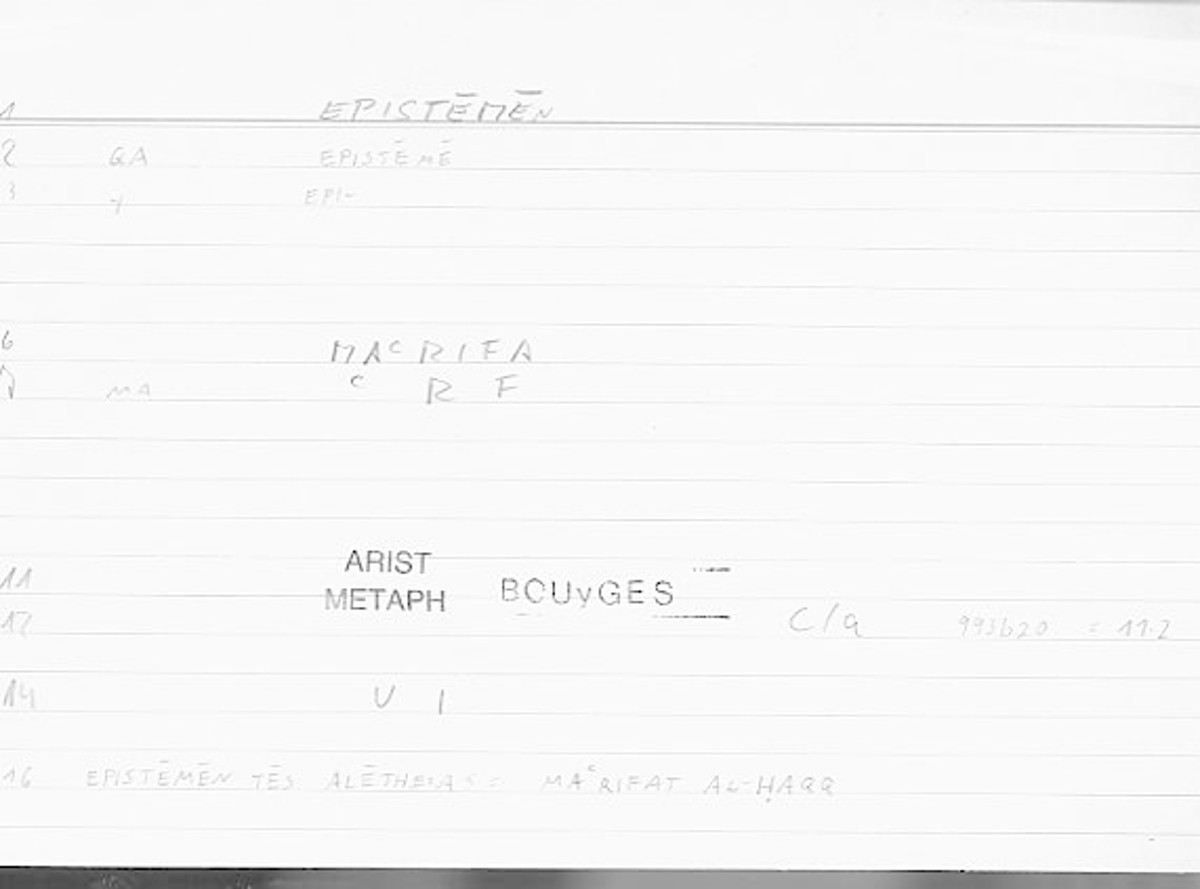 1 EPISTĒMĒN
2 GA EPISTĒMĒ
3 EPI-
6 MAᶜRIFA
MA ᶜ R F
ARIST
11 METAPH BOUYGES
12 C/a 993b20 = 11.2
14 U 1
16 EPISTĒMĒN TĒS ALĒTHEIAS = MAᶜRIFAT AL-ḤAQQ